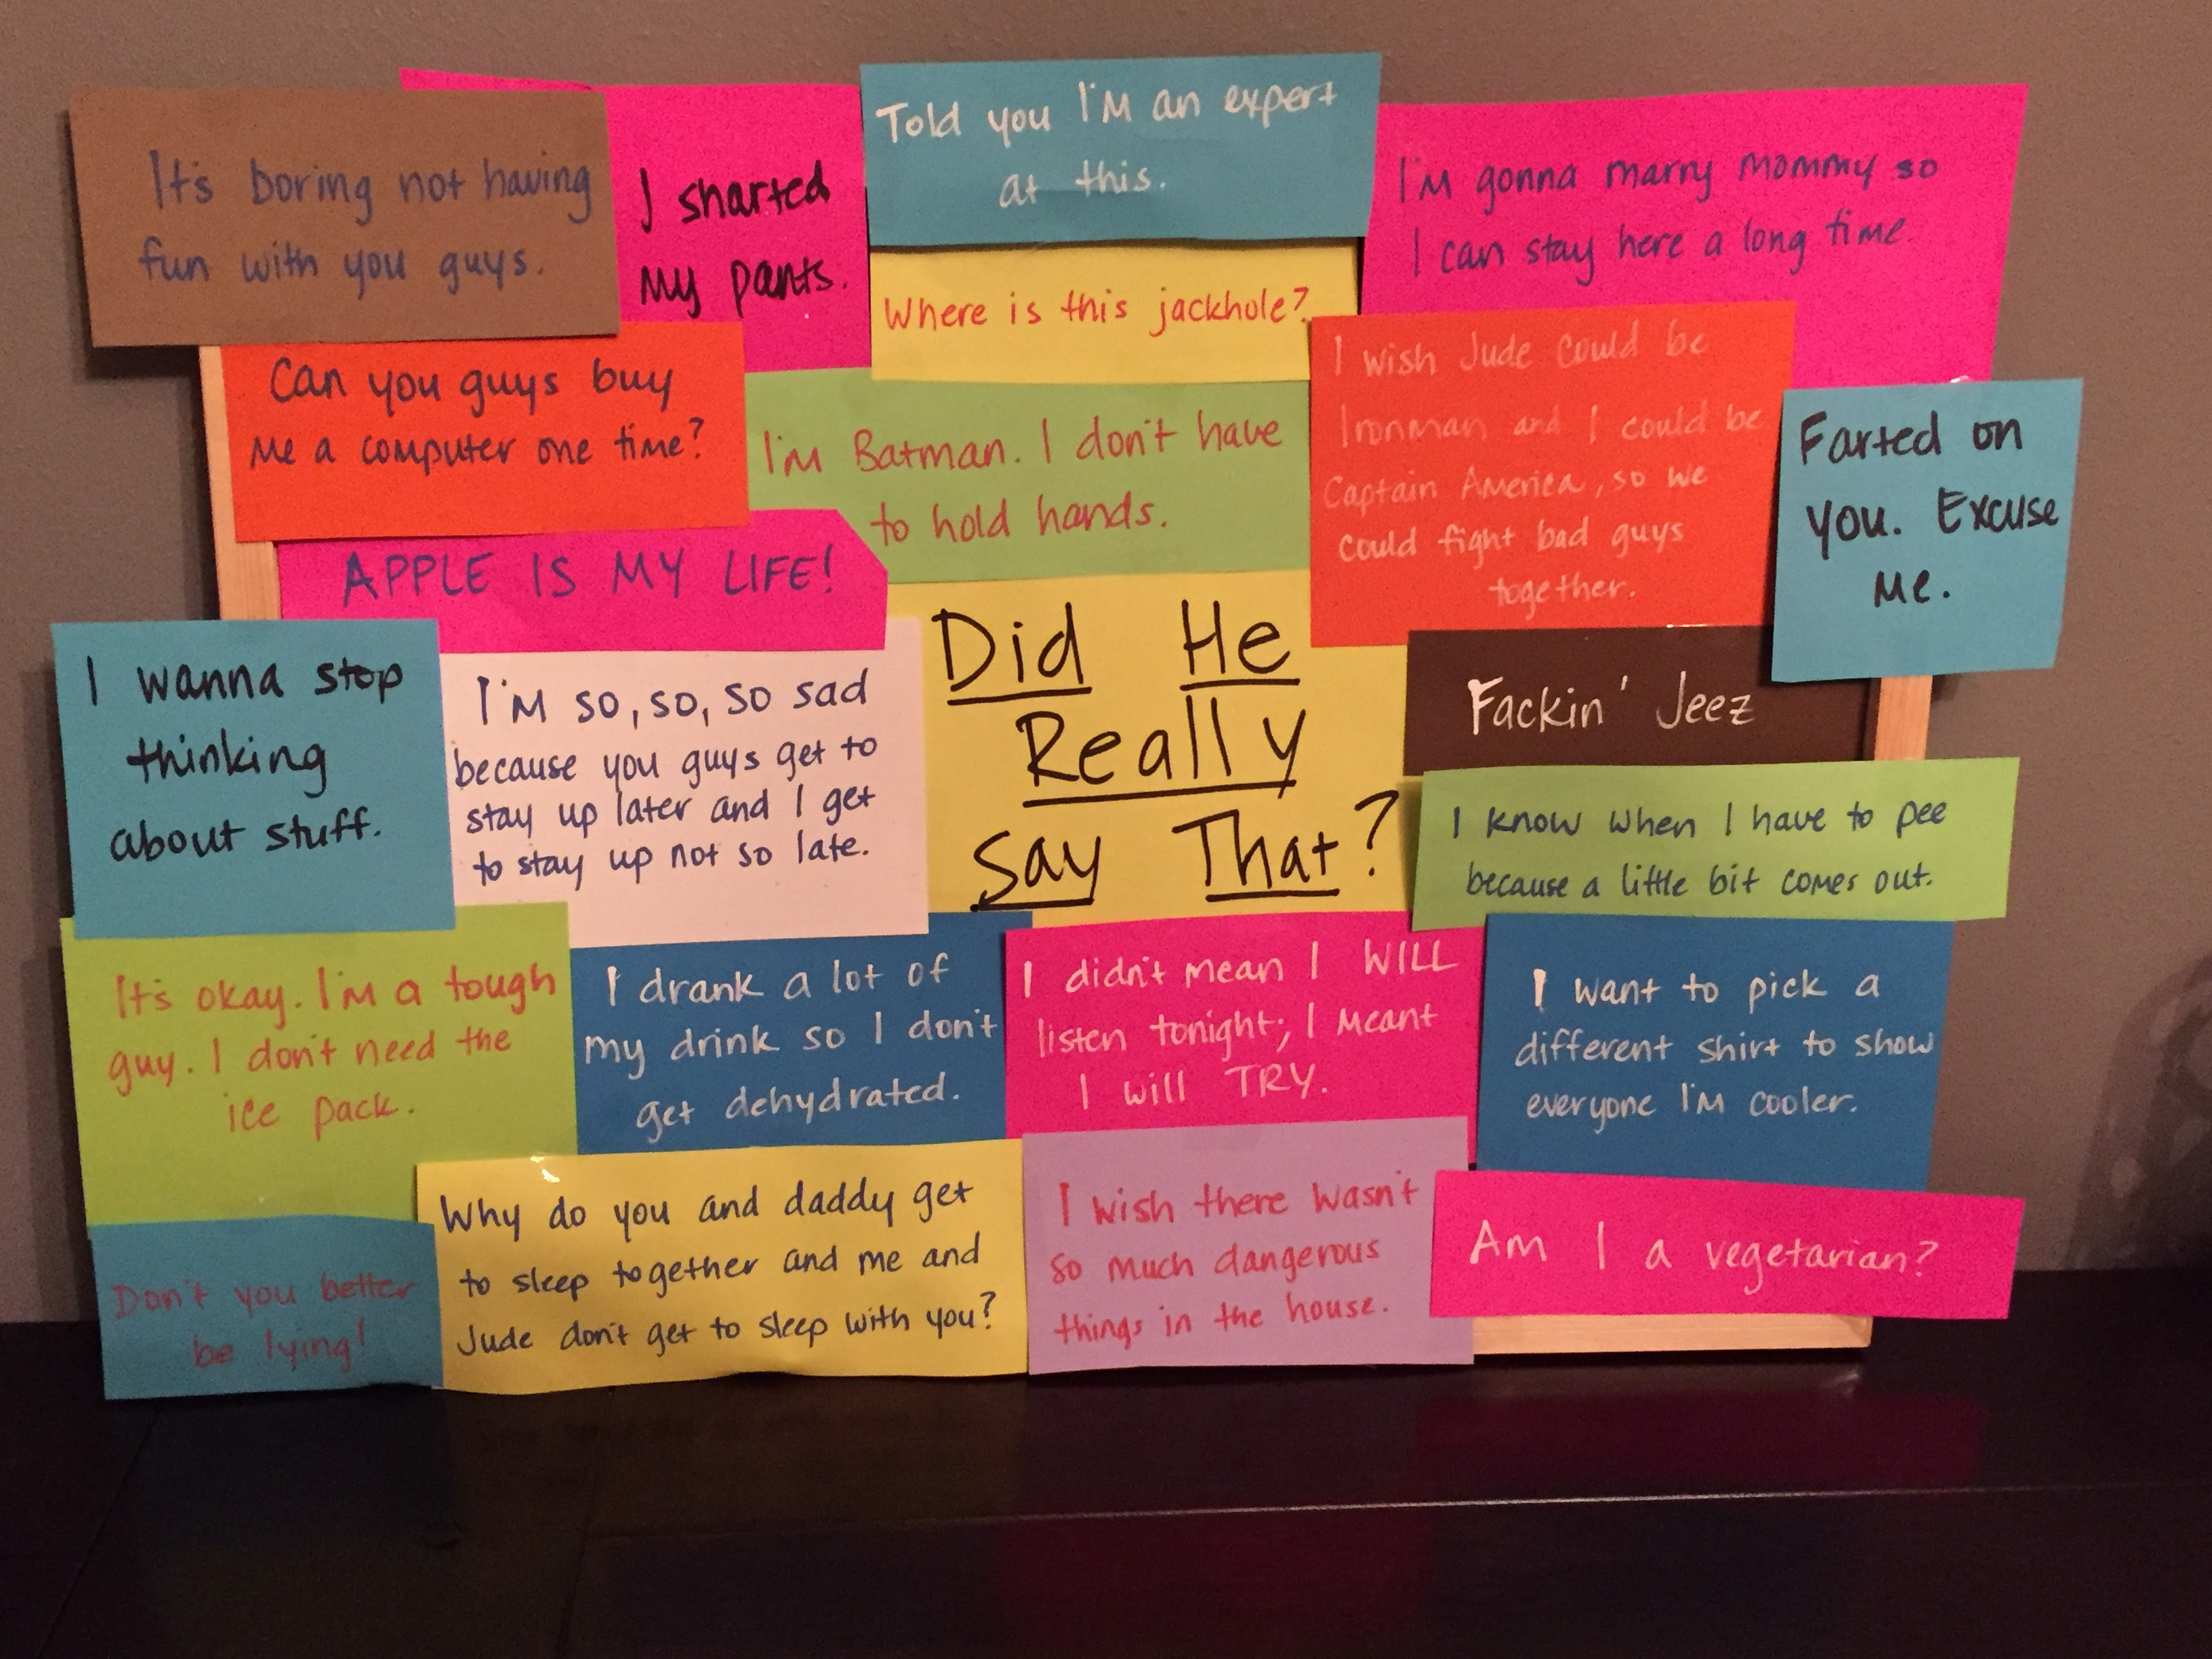 It's boring not having
fun with you guys.
I sharted
my pants.
Told you I'm an expert
at this.
I'm gonna marry mommy so
I can stay here a long time.
Where is this jackhole?
Can you guys buy
me a computer one time?
I'm Batman. I don't have
to hold hands.
I wish Jude could be
Ironman and I could be
Captain America, so we
could fight bad guys
together.
Farted on
you. Excuse
me.
APPLE IS MY LIFE!
Did He
Really
Say That?
I wanna stop
thinking
about stuff.
I'm so, so, so sad
because you guys get to
stay up later and I get
to stay up not so late.
Fackin' Jeez
I know when I have to pee
because a little bit comes out.
It's okay. I'm a tough
guy. I don't need the
ice pack.
I drank a lot of
my drink so I don't
get dehydrated.
I didn't mean I WILL
listen tonight; I meant
I will TRY.
I want to pick a
different shirt to show
everyone I'm cooler.
Don't you better
be lying!
Why do you and daddy get
to sleep together and me and
Jude don't get to sleep with you?
I wish there wasn't
so much dangerous
things in the house.
Am I a vegetarian?